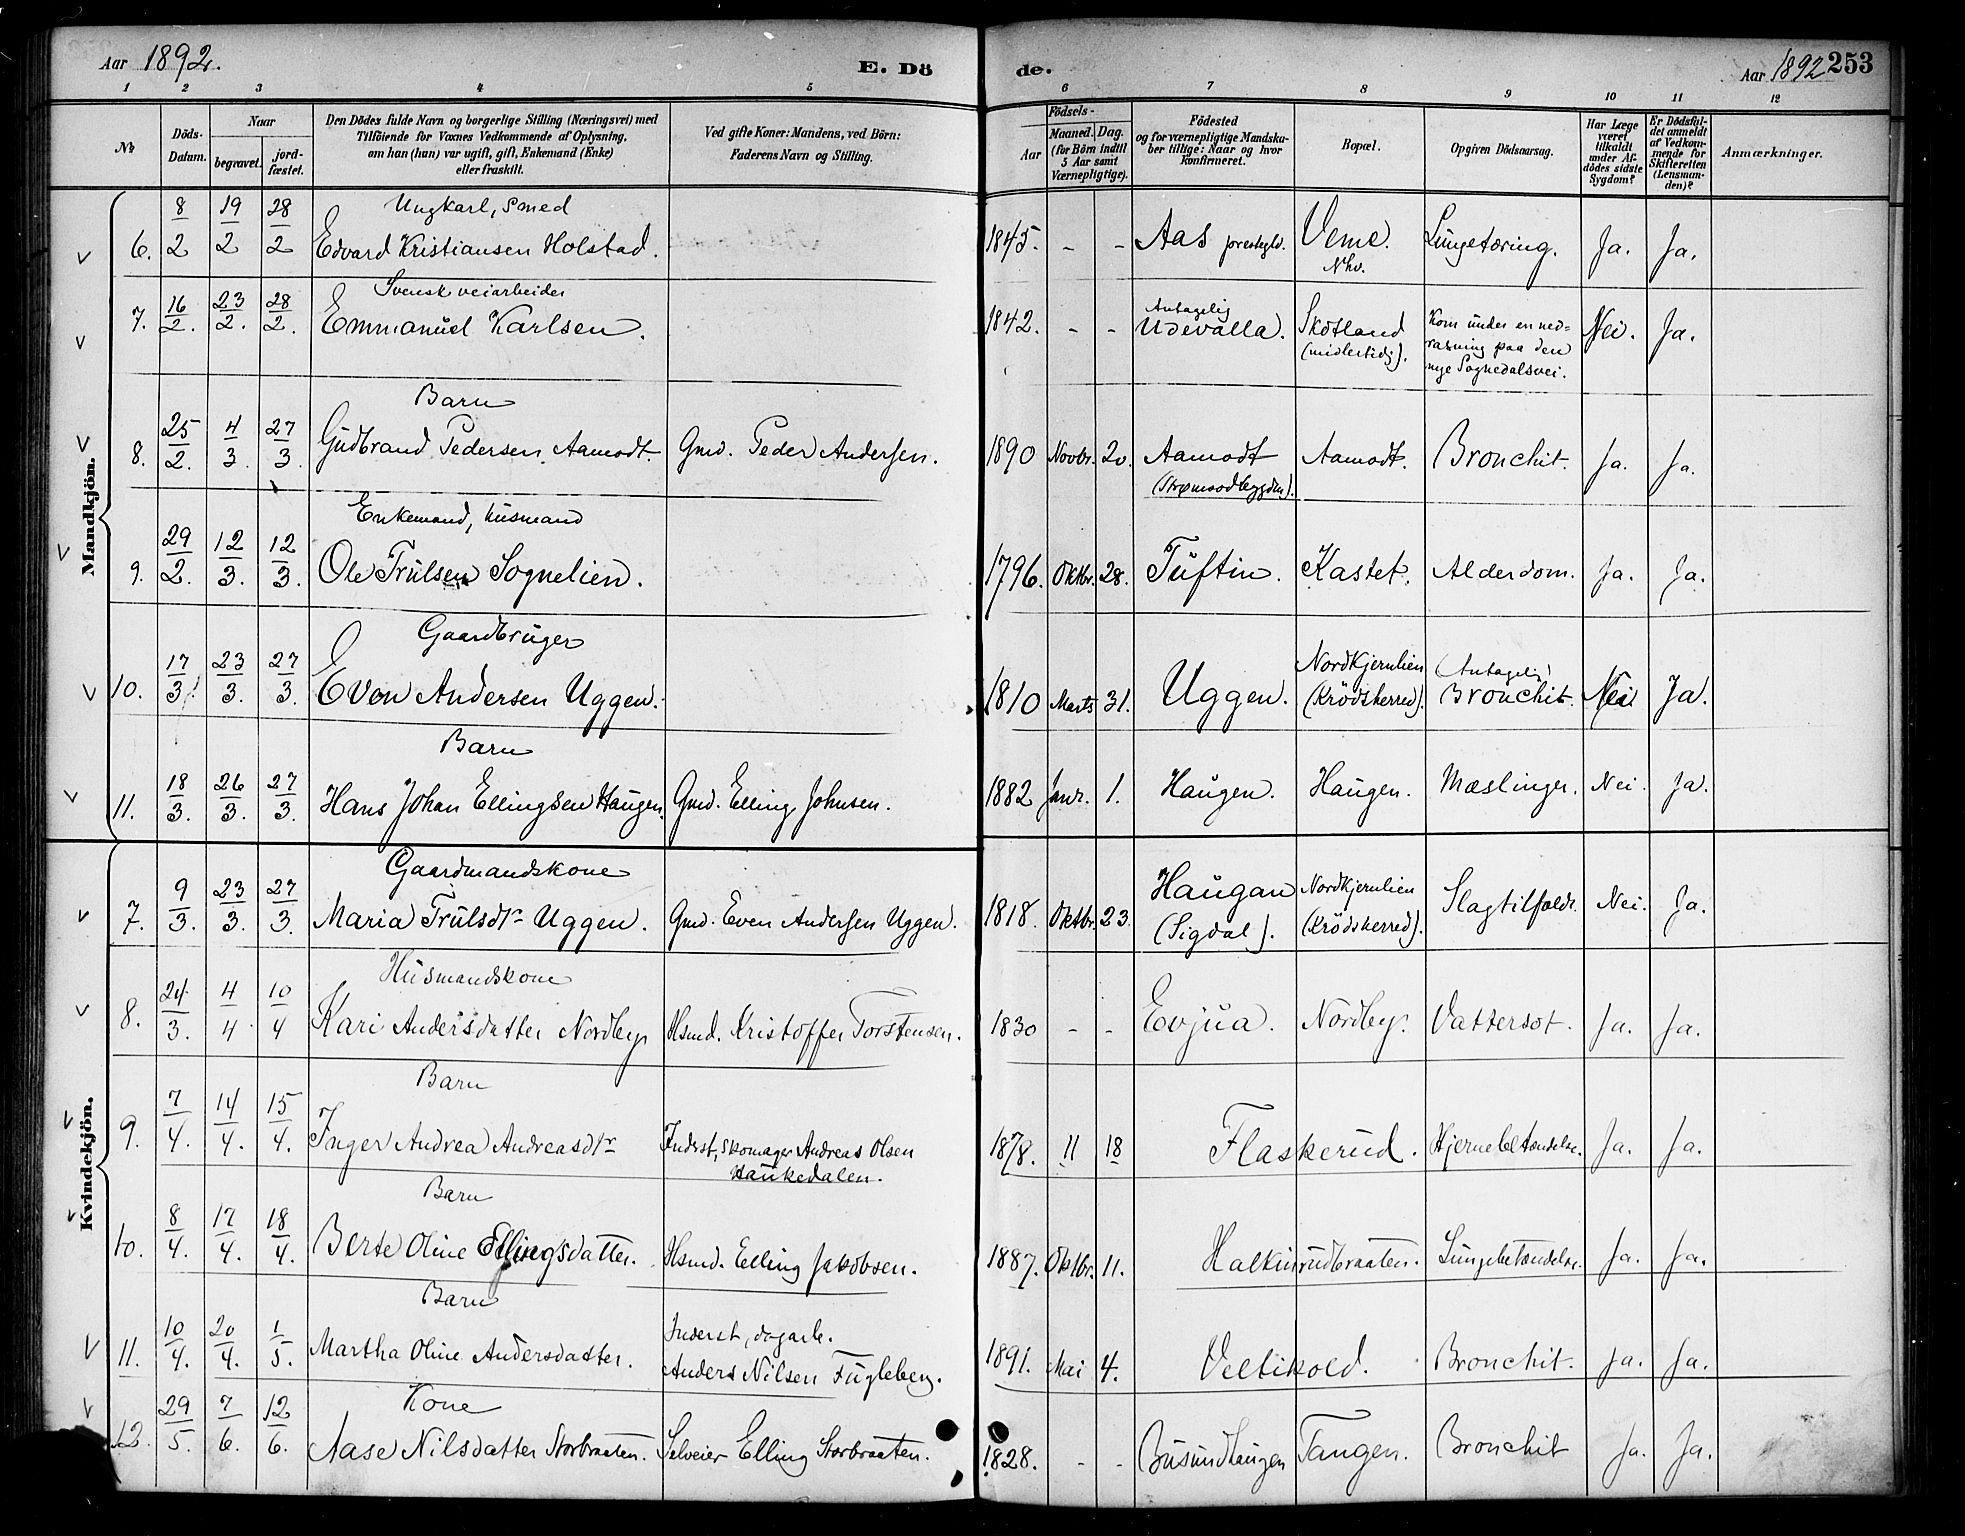 Aar 1892. E. Dö de. Aar 1892 253
1 2 3 4 5 6 7 8 9 10 11 12
No Döds-Datum. Naar begravet. jordfæstet. Den Dödes fulde Navn og borgerlige Stilling (Næringsvei) med Tilföiende for Voxnes Vedkommende af Oplysning, om han (hun) var ugift, gift, Enkemand (Enke) eller fraskilt. Ved gifte Koner: Mandens, ved Börn: Faderens Navn og Stilling. Födsels- Aar Maaned. Dag. (for Börn indtil 5 Aar samt Værnepligtige). Födested og for værnepligtige Mandskaber tillige: Naar og hvor Konfirmeret. Bopæl. Opgiven Dödsaarsag. Har Læge været tilkaldt under Afdödes sidste Sygdom? Er Dödsfaldet anmeldt af Vedkommende for Skifteretten (Lensmanden)? Anmærkninger.
Mandkjön.
Ungkarl, Smed
6. 8/2 19/2 28/2 Edvard Kristiansen Holstad. 1845. - - Aas prestegld. Veme. Nhv. Lungetæring. Ja. Ja.
Svensk veiarbeider
7. 16/2. 23/2. 28/2. Emmanuel Karlsen. 1842. - - Antagelig Udevalla. Skotland (midlertidig). Kom under en nedrasning paa den nye Sognedalsvei. Nei. Ja.
Barn
8. 25/2. 4/3. 27/3. Gudbrand Pedersen Aamodt. Gmd. Peder Andersen. 1890 Novbr. 20. Aamodt (Strømsodbygden). Aamodt. Bronchit. Ja. Ja.
Enkemand, husmand
9. 29/2. 12/3. 12/3. Ole Trulsen Sognelien. 1796. Oktbr. 28. Tuftin. Kastet. Alderdom. Ja. Ja.
Gaardbruger
10. 17/3. 23/3. 27/3. Even Andersen Uggen. 1810 Marts 31. Uggen. Nordkjernlien (Krödsherred). (Antagelig) Bronchit. Nei Ja.
Barn
11. 18/3. 26/3. 27/3. Hans Johan Ellingsen Haugen. Gmd. Elling Johnsen. 1882 Janr. 1. Haugen. Haugen. Mæslinger. Nei. Ja.
Kvindekjön.
Gaardmandskone
7. 9/3. 23/3. 27/3. Maria Trulsdtr Uggen. Gmd. Even Andersen Uggen. 1818. Oktbr. 23. Haugan (Sigdal). Nordkjernlien (Krödsherred). Slagtilfælde. Nei. Ja.
Husmandskone
8. 24/3. 4/4. 10/4 Kari Andersdatter Nordby. Hsmd. Kristoffer Torstensen. 1830 - - Evjua. Nordby. Vattersot. Ja. Ja.
Barn
9. 7/4. 14/4. 15/4. Inger Andrea Andreasdtr Inderst, skomager Andreas Olsen Haukedalen. 1878. 11 18 Flaskerud. Hjernebetændelse. Ja. Ja.
Barn
10. 8/4. 17/4. 18/4. Berte Oline Ellingsdatter. Hsmd. Elling Jakobsen. 1887. Oktbr. 11. Halkinrudbraaten. Lungebetændelse. Ja. Ja.
Barn
11. 10/4. 20/4. 1/5. Martha Oline Andersdatter. Inderst, dagarb. Anders Nilsen Fugleberg. 1891. Mai 4. Veltikold. Bronchit. Ja. Ja.
Kone
12. 29/5. 7/6. 12/6. Aase Nilsdatter Storbraaten. Selveier Elling Storbraaten. 1828. - - Busundhaugen Tangen. Bronchit Ja. Ja.